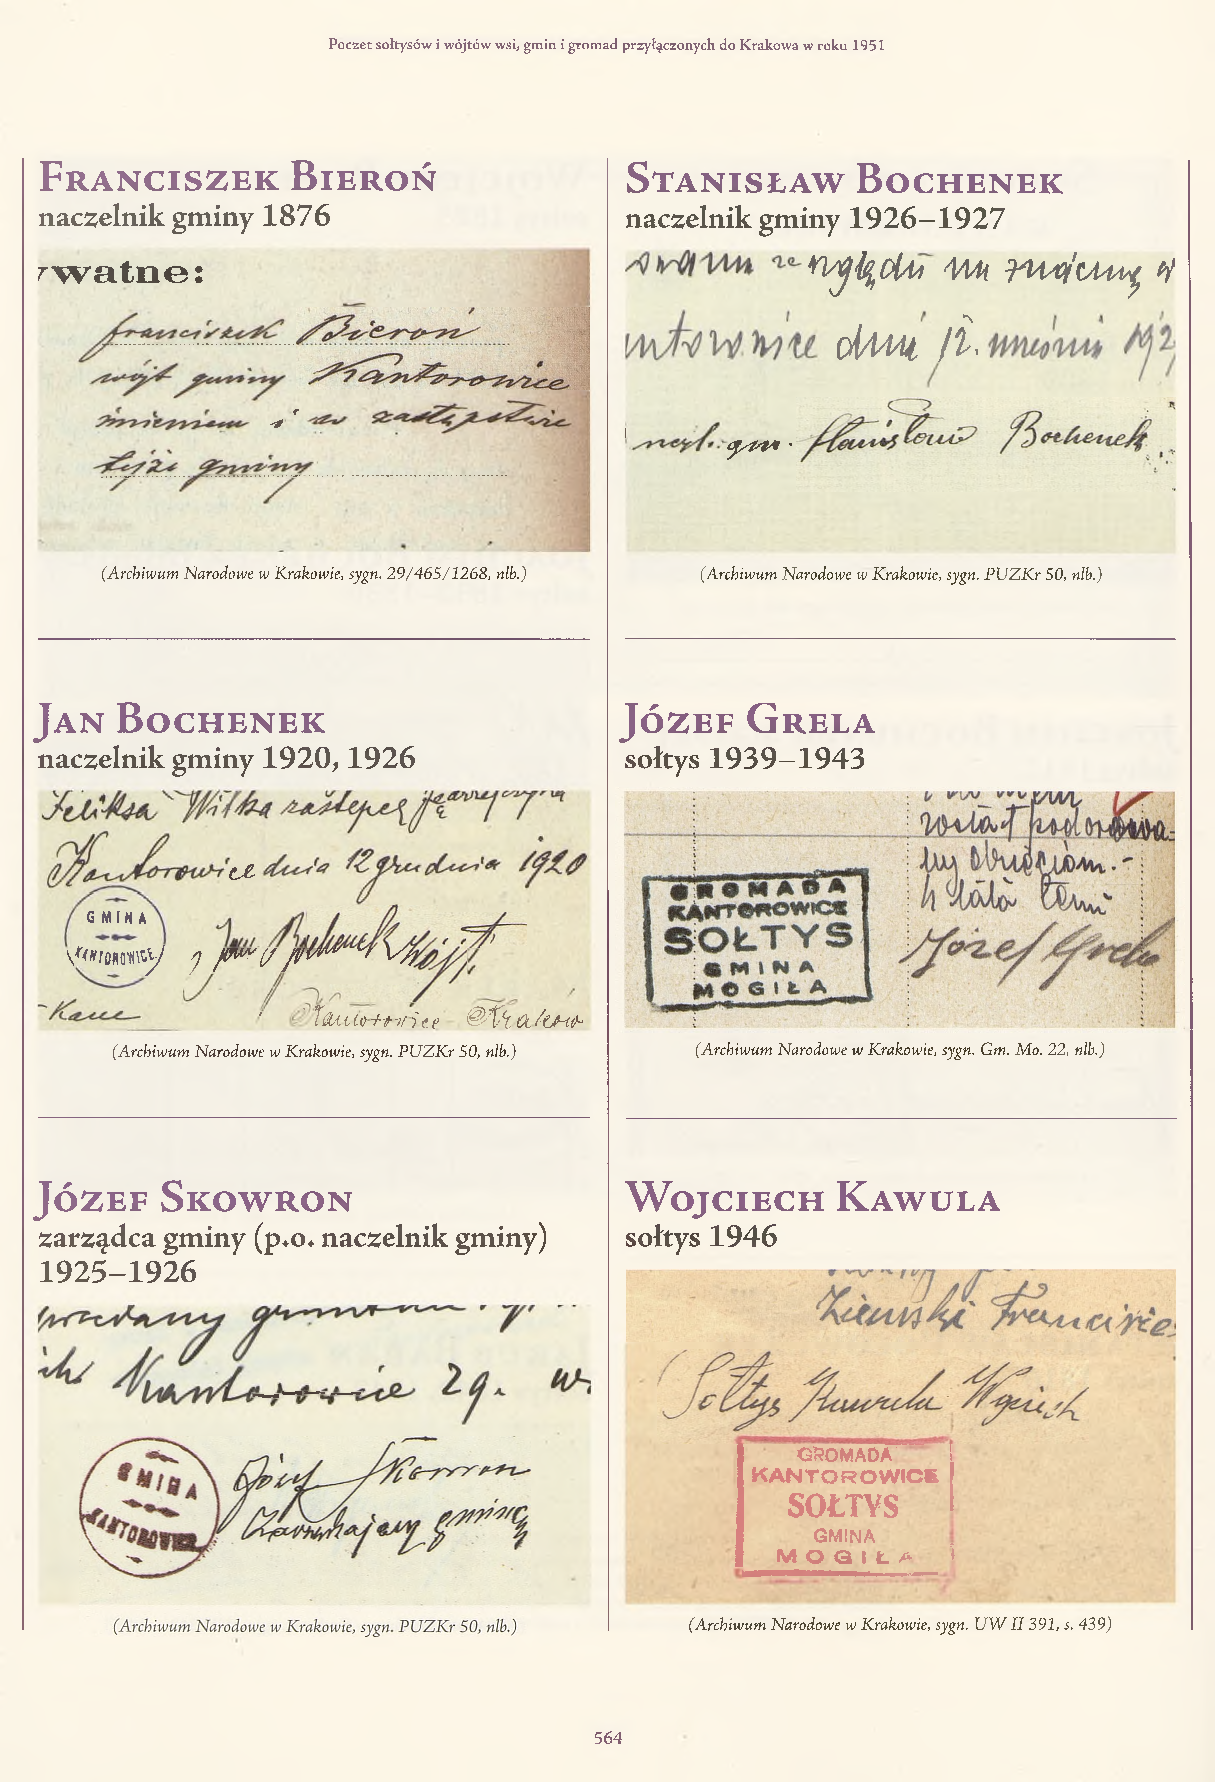 Poczet sołtysów i wójtów wsi, gmin i gromad przyłączonych do Krakowa w roku 1951
Franciszek Bieroń
naczelnik gminy 1876
watne:
Franciszek Bieroń
wójt gminy Kantorowice
imieniem i w zastępstwie
tejże gminy
(Archiwum Narodowe w Krakowie, sygn. 29/465/1268, nlb.)
Jan Bochenek
naczelnik gminy 1920, 1926
Feliksa Wilka zastępcę
Kantorowice dnia 12 grudnia 1920
GMINA
KANTOROWICE
Jan Bochenek Wójt
Kantorowice Kraków
(Archiwum Narodowe w Krakowie, sygn. PUZKr 50, nlb.)
Józef Skowron
zarządca gminy (p.o. naczelnik gminy)
1925–1926
Kantorowice 29.
GMINA
KANTOROWICE
Józef Skowron
gminą
(Archiwum Narodowe w Krakowie, sygn. PUZKr 50, nlb.)
Stanisław Bochenek
naczelnik gminy 1926–1927
względu na
dnia 12.
naczl. gm. Stanisław Bochenek
(Archiwum Narodowe w Krakowie, sygn. PUZKr 50, nlb.)
Józef Grela
sołtys 1939–1943
został
GROMADA
KANTOROWICE
SOŁTYS
GMINA
MOGIŁA
Józef Grela
(Archiwum Narodowe w Krakowie, sygn. Gm. Mo. 22, nlb.)
Wojciech Kawula
sołtys 1946
Ziemski
Sołtys Kawula Wojciech
GROMADA
KANTOROWICE
SOŁTYS
GMINA
MOGIŁA
(Archiwum Narodowe w Krakowie, sygn. UW II 391, s. 439)
564